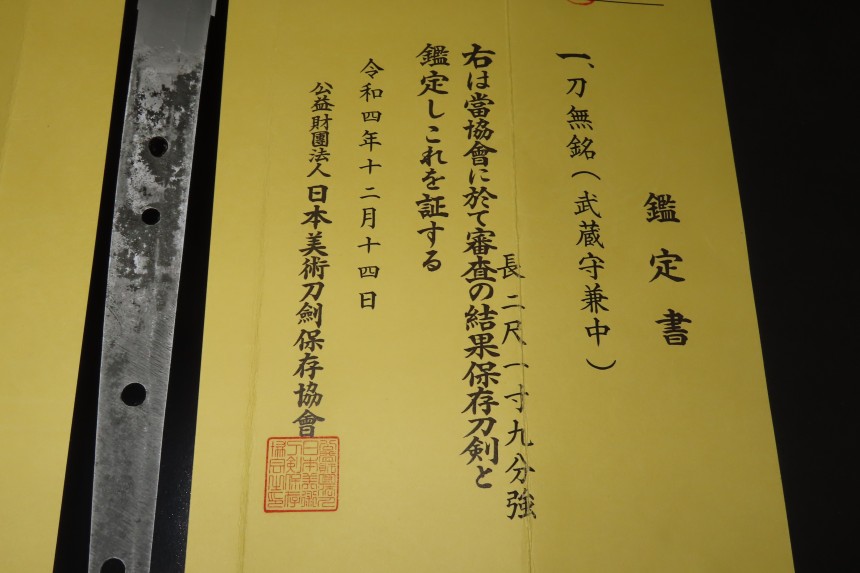 鑑定書
一、刀無銘(武蔵守兼中)
長二尺一寸九分強
右は當協會に於て審査の結果保存刀剣と
鑑定しこれを証する
令和四年十二月十四日
公益財團法人日本美術刀劍保存協會